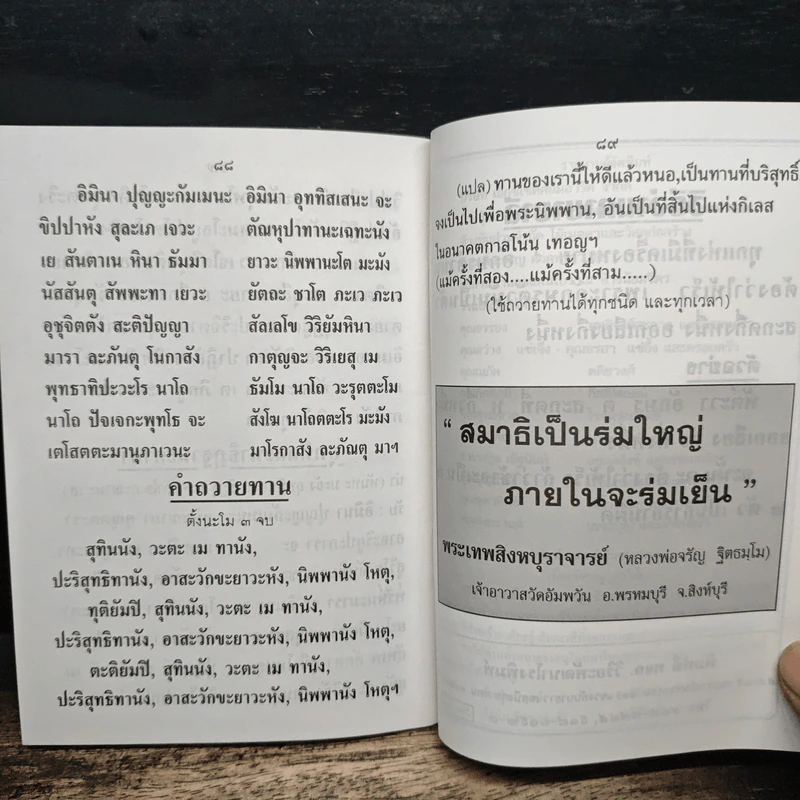 ๘๘
อิมินา ปุญญะกัมเมนะ อิมินา อุททิสเสนะ จะ
ขิปปาหัง สุละเภ เจวะ ตัณหุปาทานะเฉทะนัง
เย สันตาเน หินา ธัมมา ยาวะ นิพพานะโต มะมัง
นัสสันตุ สัพพะทา เยวะ ยัตถะ ชาโต ภะเว ภะเว
อุชุจิตตัง สะติปัญญา สัลเลโข วิริยัมหินา
มารา ละภันตุ โนกาสัง กาตุญจะ วิริเยสุ เม
พุทธาทิปะวะโร นาโถ ธัมโม นาโถ วะรุตตะโม
นาโถ ปัจเจกะพุทโธ จะ สังโฆ นาโถตตะโร มะมัง
เตโสตตะมานุภาเวนะ มาโรกาสัง ละภัณตุ มาฯ
คำถวายทาน
ตั้งนะโม ๓ จบ
สุทินนัง, วะตะ เม ทานัง,
ปะริสุทธิทานัง, อาสะวักขะยาวะหัง, นิพพานัง โหตุ,
ทุติยัมปิ, สุทินนัง, วะตะ เม ทานัง,
ปะริสุทธิทานัง, อาสะวักขะยาวะหัง, นิพพานัง โหตุ,
ตะติยัมปิ, สุทินนัง, วะตะ เม ทานัง,
ปะริสุทธิทานัง, อาสะวักขะยาวะหัง, นิพพานัง โหตุฯ
๘๙
(แปล) ทานของเรานี้ให้ดีแล้วหนอ,เป็นทานที่บริสุทธิ์
จงเป็นไปเพื่อพระนิพพาน, อันเป็นที่สิ้นไปแห่งกิเลส
ในอนาคตกาลโน้น เทอญฯ
(แม้ครั้งที่สอง....แม้ครั้งที่สาม.....)
(ใช้ถวายทานได้ทุกชนิด และทุกเวลา)
“ สมาธิเป็นร่มใหญ่
ภายในจะร่มเย็น ”
พระเทพสิงหบุราจารย์ (หลวงพ่อจรัญ ฐิตธมฺโม)
เจ้าอาวาสวัดอัมพวัน อ.พรหมบุรี จ.สิงห์บุรี